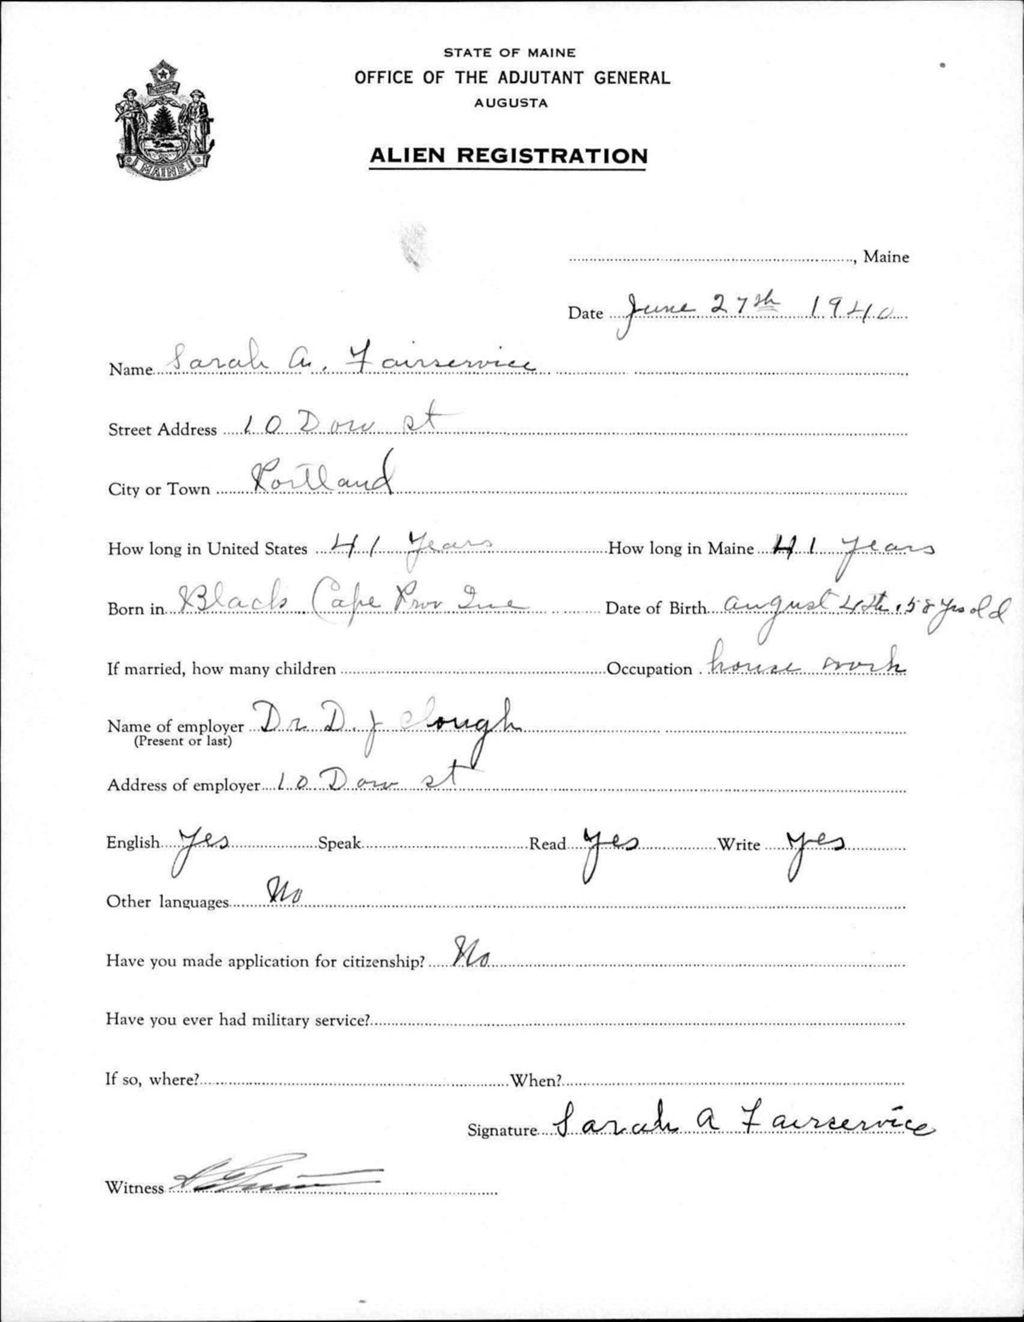 STATE OF MAINE
OFFICE OF THE ADJUTANT GENERAL
AUGUSTA
ALIEN REGISTRATION
MAINE
, Maine
Date June 27th 1940
Name Sarah A. Fairservice
Street Address 10 Dow st
City or Town Portland
How long in United States 41 Years How long in Maine 41 years
Born in Black Cape Prov Que Date of Birth August 4th, 58 yrs old
If married, how many children Occupation house work
Name of employer Dr D. J Clough
(Present or last)
Address of employer 10 Dow st
English Yes Speak Read yes Write yes
Other languages No
Have you made application for citizenship? No
Have you ever had military service?
If so, where? When?
Signature Sarah A Fairservice
Witness